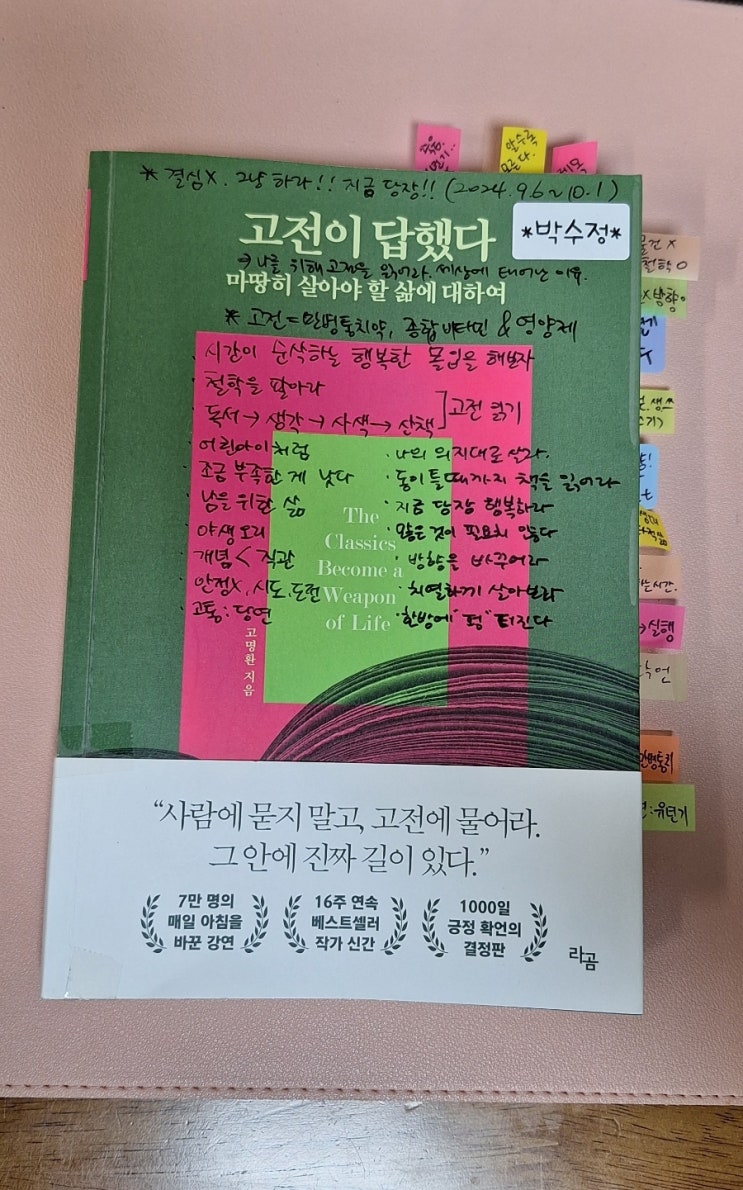 알수록
모른다.
* 결심X. 그냥 하라!! 지금 당장!! (2024. 9.6 ~ 10.1)
고전이 답했다
*박수정*
→ 나를 위해 고전을 읽어라. 세상에 태어난 이유.
마땅히 살아야 할 삶에 대하여
* 고전 = 만병통치약, 종합 비타민 & 영양제
· 시간이 순삭하는 행복한 몰입을 해보자
· 철학을 팔아라
· 독서 → 생각 → 사색 → 산책 ] 고전 읽기
· 어린아이처럼
· 조금 부족한 게 낫다
· 남을 위한 삶
· 야생오리
· 개념 < 직관
· 안정X, 시도, 도전
· 고통 : 당연
· 나의 의지대로 살라.
· 동이 틀 때까지 책을 읽어라
· 지금 당장 행복하라
· 많은 것이 필요치 않다
· 방향을 바꾸어라
· 치열하게 살아보라
· 한방에 "펑" 터진다
The
Classics
Become a
Weapon
of Life
고명환 지음
물건 X
철학 O
X 방향 O
→ 실행
만병통치
"사람에 묻지 말고, 고전에 물어라.
그 안에 진짜 길이 있다."
7만 명의
매일 아침을
바꾼 강연
16주 연속
베스트셀러
작가 신간
1000일
긍정 확언의
결정판
라곰